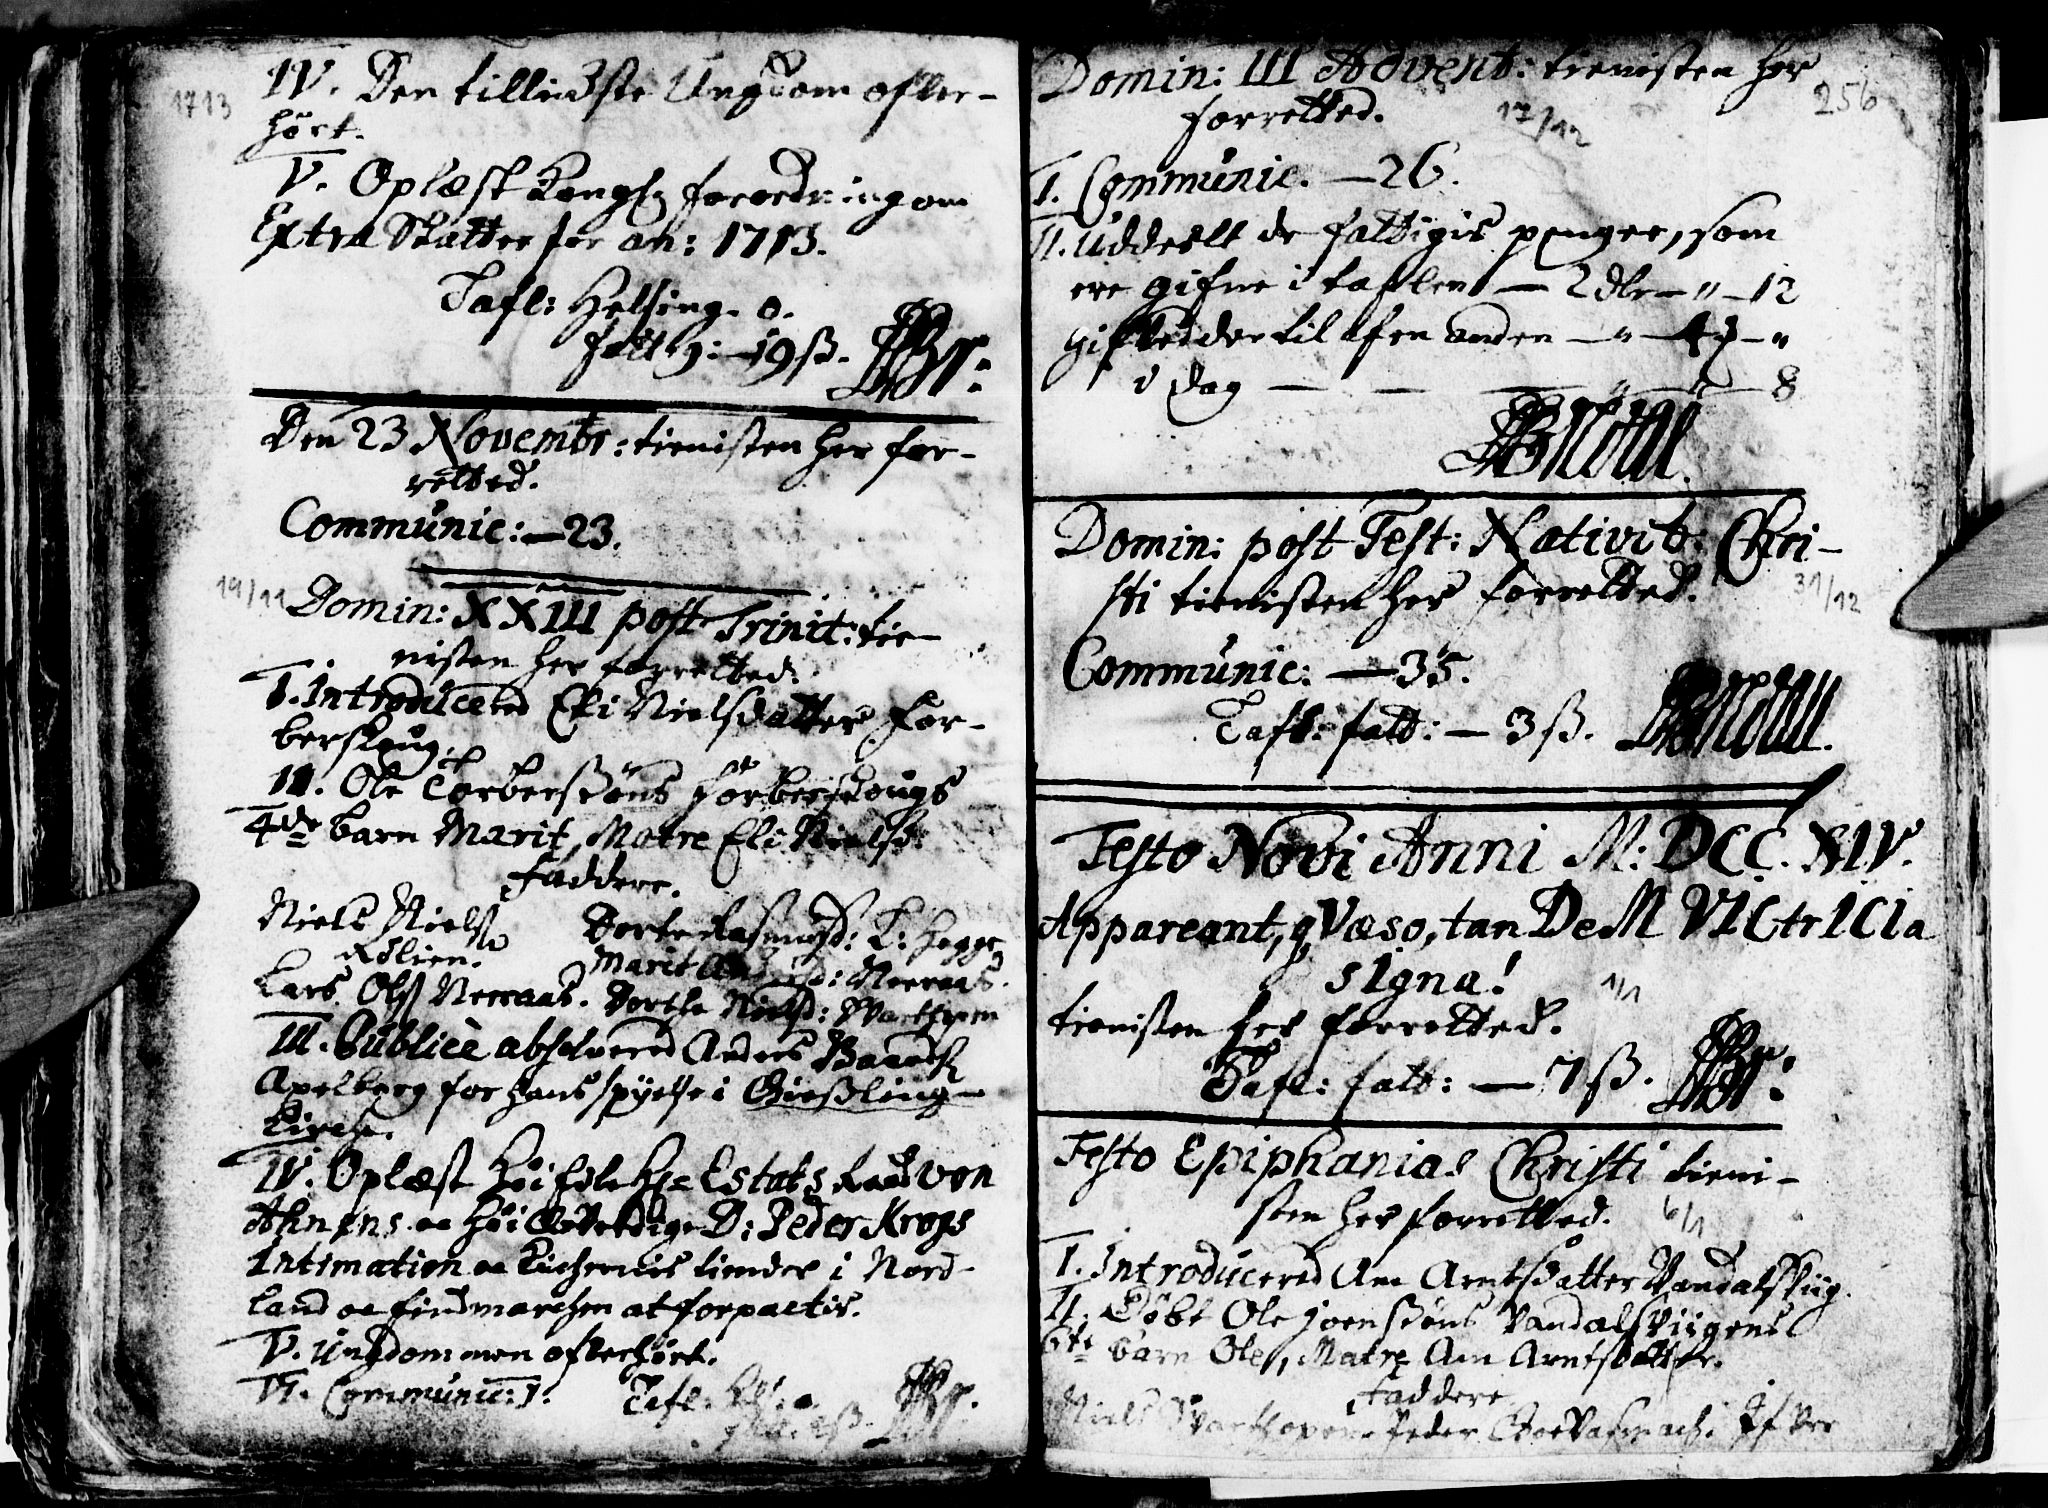 1713
IV. Den tillidste Ungdom ofver-
hört.
V. Oplæst Kongl forordning om
Extra Skatter for an: 1713.
Tafl: Helsing. 0.
fatt: – 19 ß.
Den 23 Novembr: tienisten her for-
retted.
Communic: – 23.
19/11
Domin: XXIII post Trinit: tie-
nisten her forretted.
I. Introducered Eli Nielsdatter For-
berskoug.
II. Ole Torbersöns Forberskougs
4de barn Marit, Matre Eli Nielsd:
Faddere.
Niels Niels Dorte Rasmusd: K: Hegge
Rölien. Marit Nerraas.
Lars Ols Nerraas. Dorthe Nielsd: Svarthopen
III. Publicè absolvered Anders
Apelberg for hans spyelse i Giesling-
Kirche.
IV. Oplæst Höi Edle Hr Estats Raad von
Ahnens oc Höi Ærverdige D: Peder Krogs
Intimation oc Kirchernis tiender i Nord-
land oc Findmarchen at forpactis.
V. Ungdommen ofverhört.
VI. Communic: 7. Tafl: 0.
Domin: III Advent: tienisten her
256
forretted.
17/12
I. Communic. – 26.
II. Uddeelt de fattigis penger, som
ere gifne i taflen – 2 dlr – " – 12
Gifved der til afen anden – " – –"
i Dag – – – " – 8
Domin: post Fest: Nativit: Chri-
sti tienisten her forretted.
31/12
Communic: – 35.
Tafl: fatt: – 3 ß.
Festo Novi Anni M: DCC. XIV.
Appareant, qVæso, tanDeM VICtrICIa
sIgna!
1/1
tienisten her forretted.
Tafl: fatt: – 7 ß.
Festo Epiphanias Christi tieni-
sten her forretted.
6/1
I. Introducered Ane Arntsdatter Vandalsviig.
II. Döbt Ole Joensöns Vandalsviigens
6te barn Ole, Matre Ane Arntsdatter.
Faddere
Niels Svarthopen. Peder